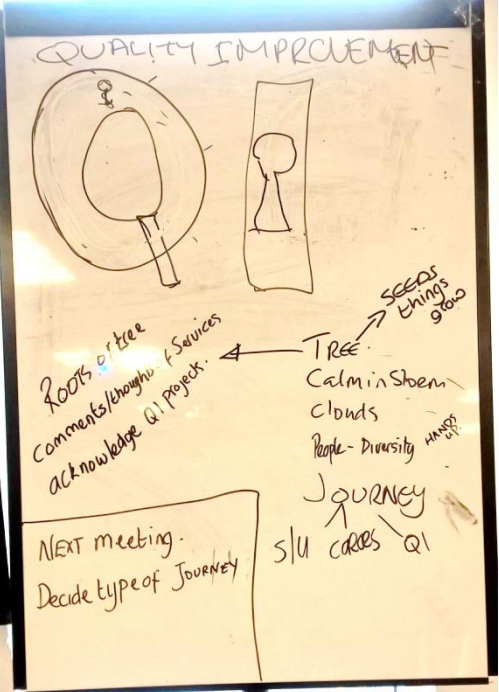 QUALITY IMPROVEMENT
SEEDS
things
grow
Roots of tree
comments/thoughts of Services
acknowledge QI projects.
TREE.
Calm in Storm
Clouds
People - Diversity
HANDS
UP.
JOURNEY
S/U carers QI
NEXT meeting.
Decide type of JOURNEY